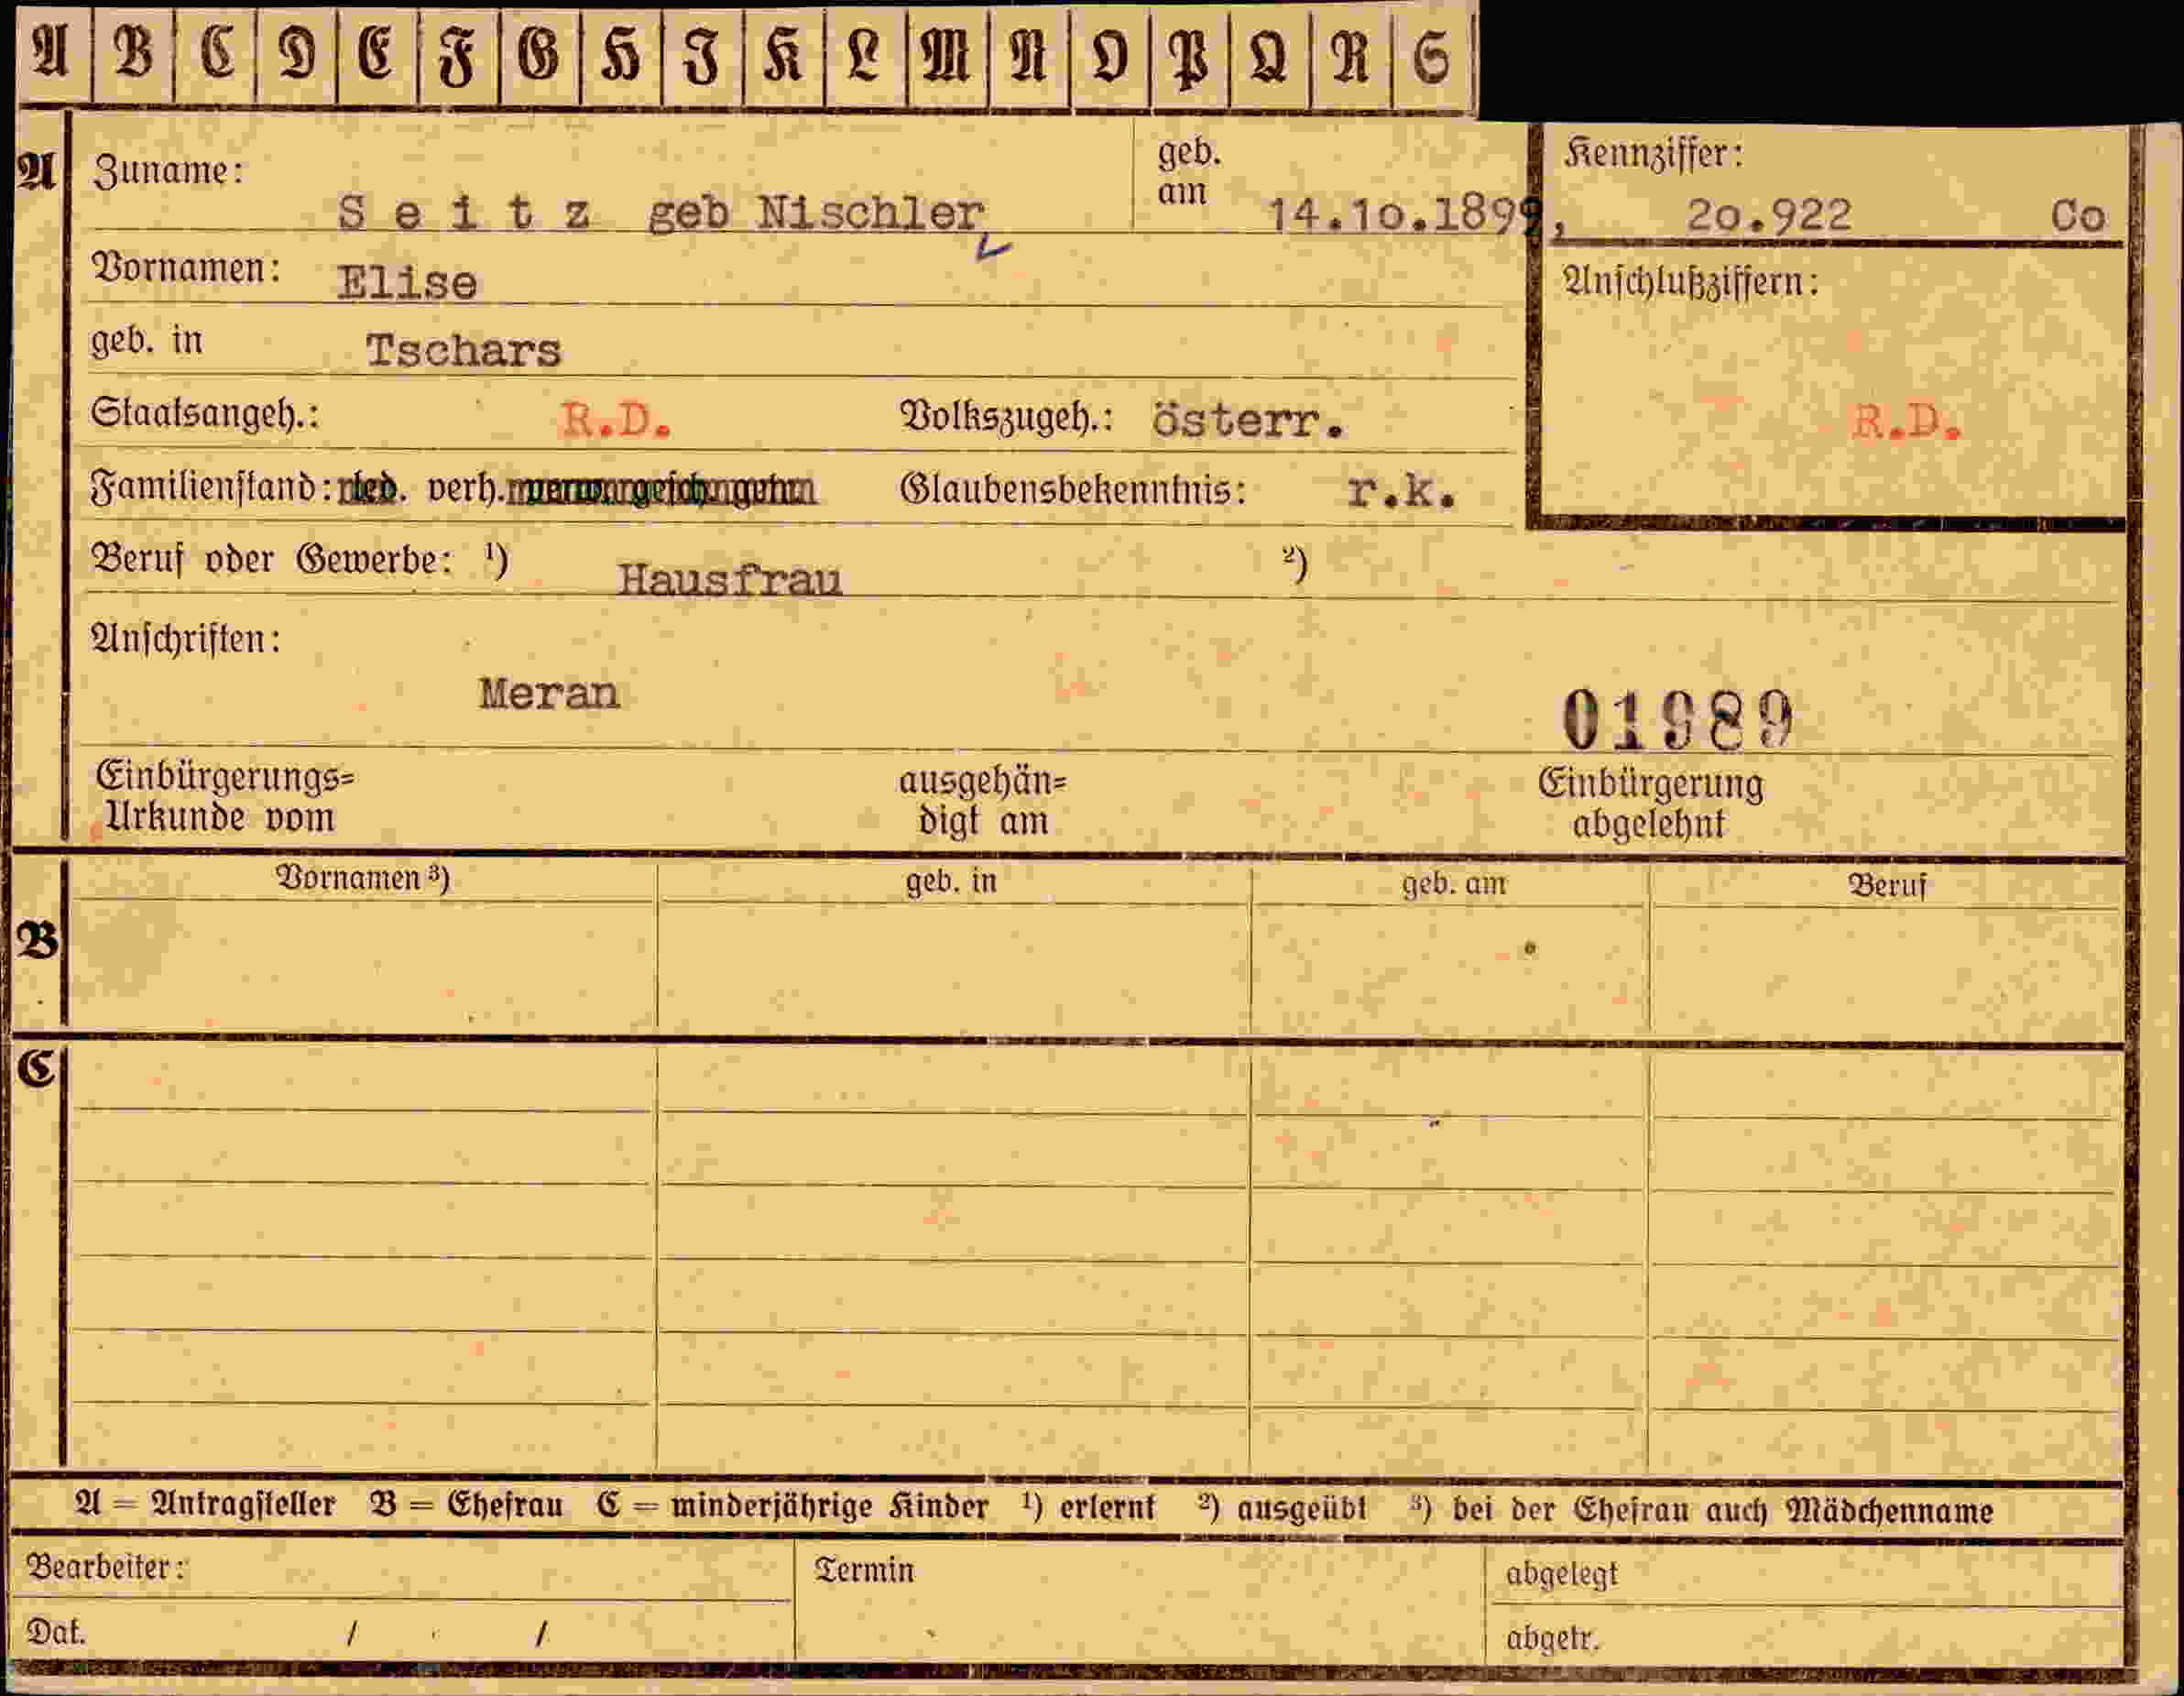 A B C D E F G H I K L M N O P Q R S
A Zuname: S e i t z geb Nischler geb. am 14.10.1899, Kennziffer: 20.922 Co
Vornamen: Elise
Anschlußziffern:
geb. in Tschars
Staatsangeh.: R.D. Volkszugeh.: österr. R.D.
Familienstand: led. verh. Glaubensbekenntnis: r.k.
Beruf oder Gewerbe: ¹) Hausfrau ²)
Anschriften:
Meran
01989
Einbürgerungs= ausgehän= Einbürgerung
Urkunde vom digt am abgelehnt
Vornamen ³) geb. in geb. am Beruf
B
C
A = Antragsteller B = Ehefrau C = minderjährige Kinder ¹) erlernt ²) ausgeübt ³) bei der Ehefrau auch Mädchenname
Bearbeiter: Termin abgelegt
Dat. / / abgetr.